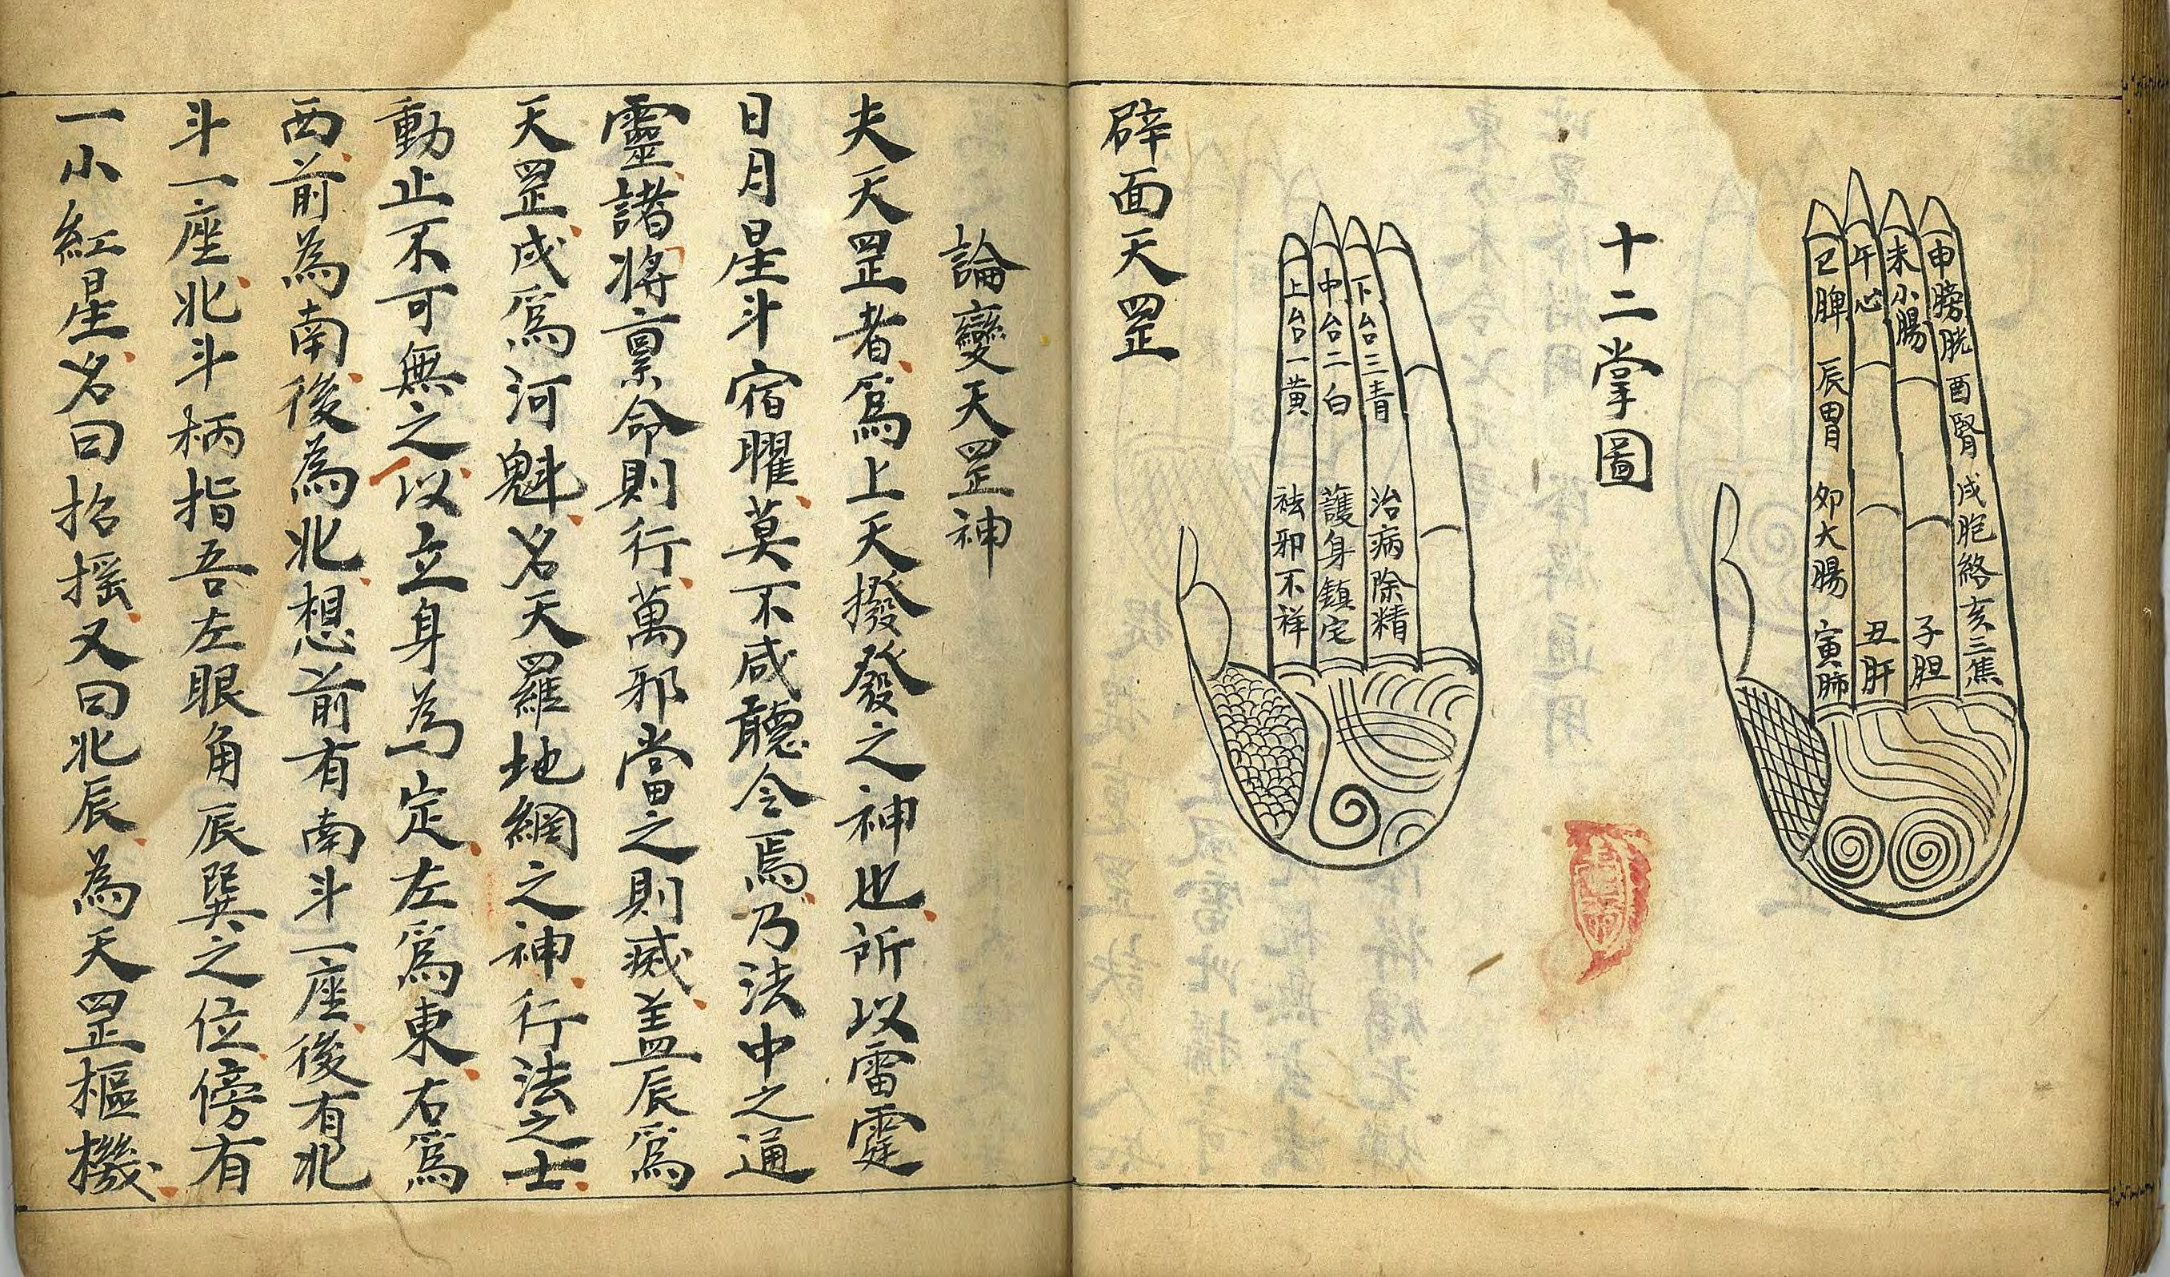 申膀胱 酉腎 戌胞絡 亥三焦
未小腸 子胆
午心 丑肝
巳脾 辰胃 卯大腸 寅肺
十二掌圖
下台三青 治病除精
中台二白 護身鎮宅
上台一黄 祛邪不祥
辟面天罡
論變天罡神
夫天罡者爲上天撥發之神也所以雷霆
日月星斗宿曜莫不咸聽令焉乃法中之通
靈諸將稟命則行萬邪當之則滅盖辰爲
天罡戌爲河魁名天羅地網之神行法之士
動止不可無之以立身為定左爲東右爲
西前為南後為北想前有南斗一座後有北
斗一座北斗柄指吾左眼角辰巽之位傍有
一小紅星名曰招摇又曰北辰為天罡樞機